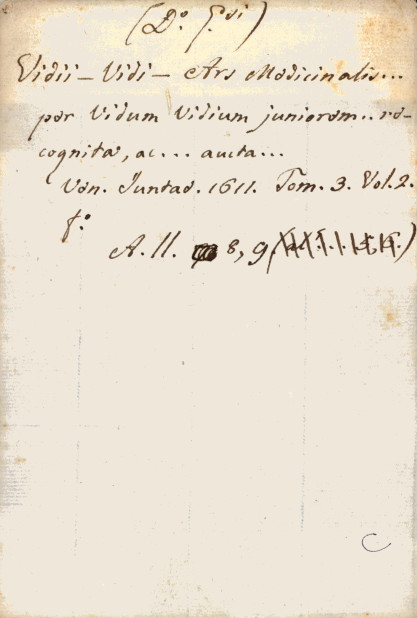 (D.º G.di)
Vidii - Vidi - Ars Medicinalis...
per Vidum Vidium juniorem.. re-
cognita, ac... aucta...
Ven. Juntas. 1611. Tom. 3. Vol. 2.
f.º
A. 11. 8, 9
C